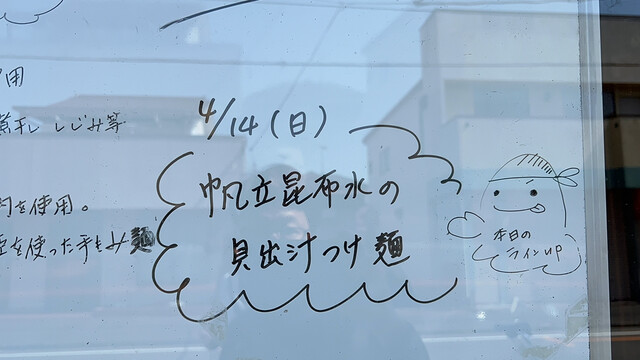 用
煮干し しじみ等
を使用。
を使った手もみ麺
4/14(日)
帆立昆布水の
貝出汁つけ麺
本日の
ラインUP